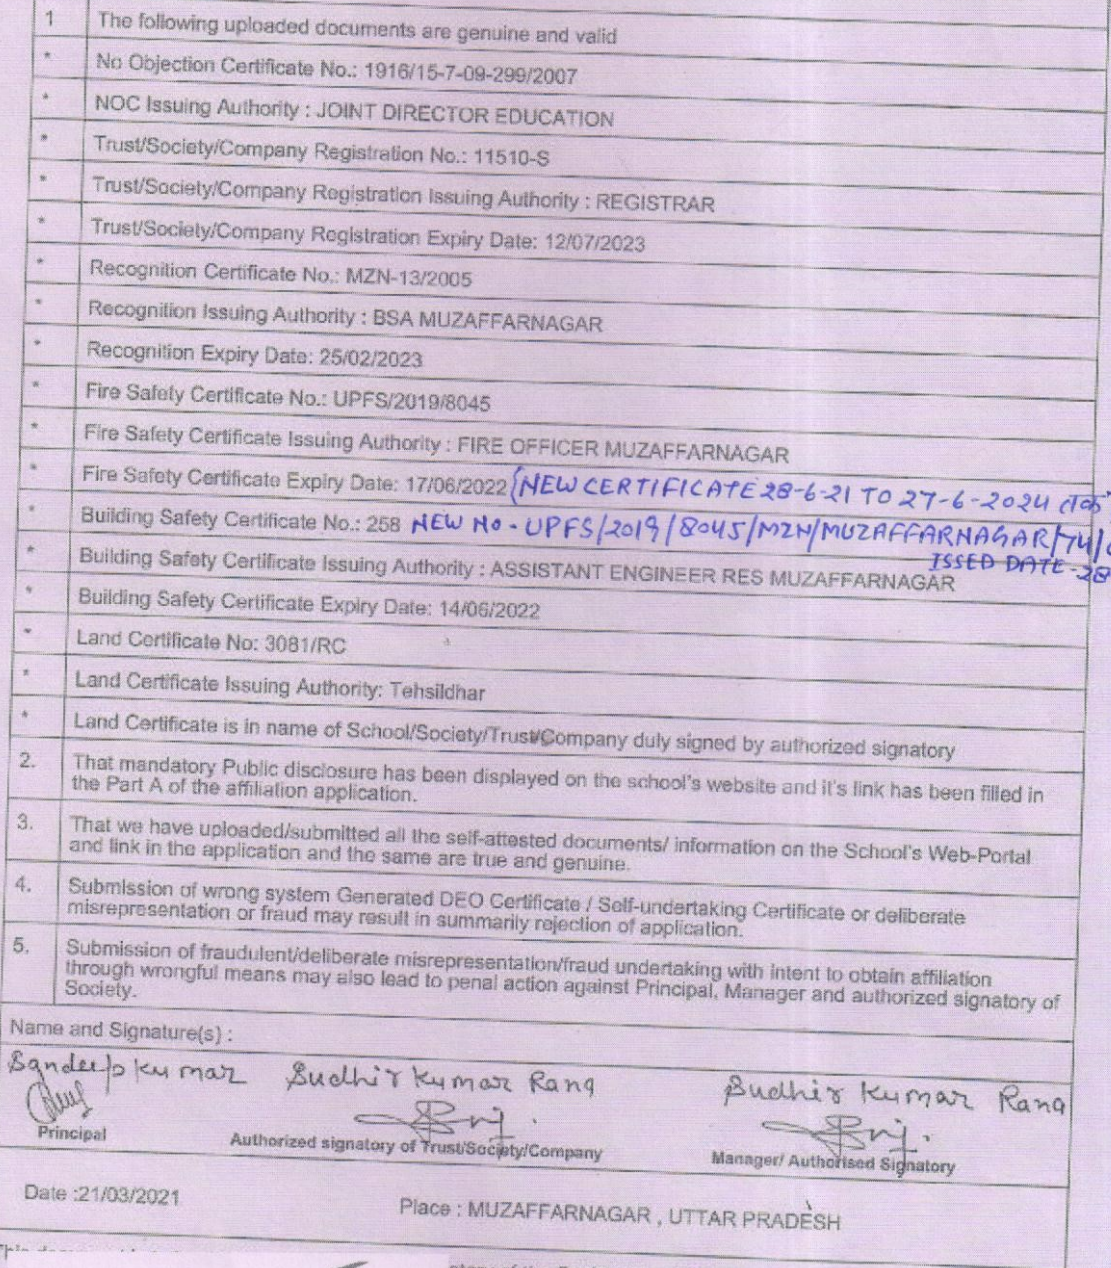 1 The following uploaded documents are genuine and valid
* No Objection Certificate No.: 1916/15-7-09-299/2007
* NOC Issuing Authority : JOINT DIRECTOR EDUCATION
* Trust/Society/Company Registration No.: 11510-S
* Trust/Society/Company Registration Issuing Authority : REGISTRAR
* Trust/Society/Company Registration Expiry Date: 12/07/2023
* Recognition Certificate No.: MZN-13/2005
* Recognition Issuing Authority : BSA MUZAFFARNAGAR
* Recognition Expiry Date: 25/02/2023
* Fire Safety Certificate No.: UPFS/2019/8045
* Fire Safety Certificate Issuing Authority : FIRE OFFICER MUZAFFARNAGAR
* Fire Safety Certificate Expiry Date: 17/06/2022 (NEW CERTIFICATE 28-6-21 TO 27-6-2024
* Building Safety Certificate No.: 258 NEW NO - UPFS/2019/8045/MZN/MUZAFFARNAGAR/74/
ISSED DATE-28
* Building Safety Certificate Issuing Authority : ASSISTANT ENGINEER RES MUZAFFARNAGAR
* Building Safety Certificate Expiry Date: 14/06/2022
* Land Certificate No: 3081/RC
* Land Certificate Issuing Authority: Tehsildhar
* Land Certificate is in name of School/Society/Trust/Company duly signed by authorized signatory
2. That mandatory Public disclosure has been displayed on the school's website and it's link has been filled in
the Part A of the affiliation application.
3. That we have uploaded/submitted all the self-attested documents/ information on the School's Web-Portal
and link in the application and the same are true and genuine.
4. Submission of wrong system Generated DEO Certificate / Self-undertaking Certificate or deliberate
misrepresentation or fraud may result in summarily rejection of application.
5. Submission of fraudulent/deliberate misrepresentation/fraud undertaking with intent to obtain affiliation
through wrongful means may also lead to penal action against Principal, Manager and authorized signatory of
Society.
Name and Signature(s) :
Sandeep Kumar Sudhir Kumar Rana Sudhir Kumar Rana
Principal Authorized signatory of Trust/Society/Company Manager/ Authorised Signatory
Date :21/03/2021 Place : MUZAFFARNAGAR , UTTAR PRADESH